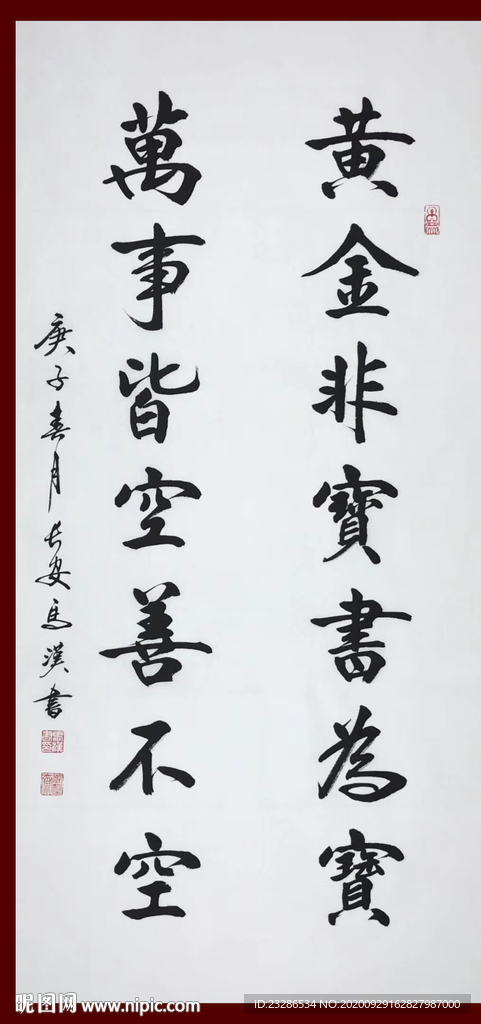 黄金非寶書為寶
萬事皆空善不空
庚子春月长安馬漢書
昵图网 www.nipic.com
ID:23286534 NO:20200929162827987000